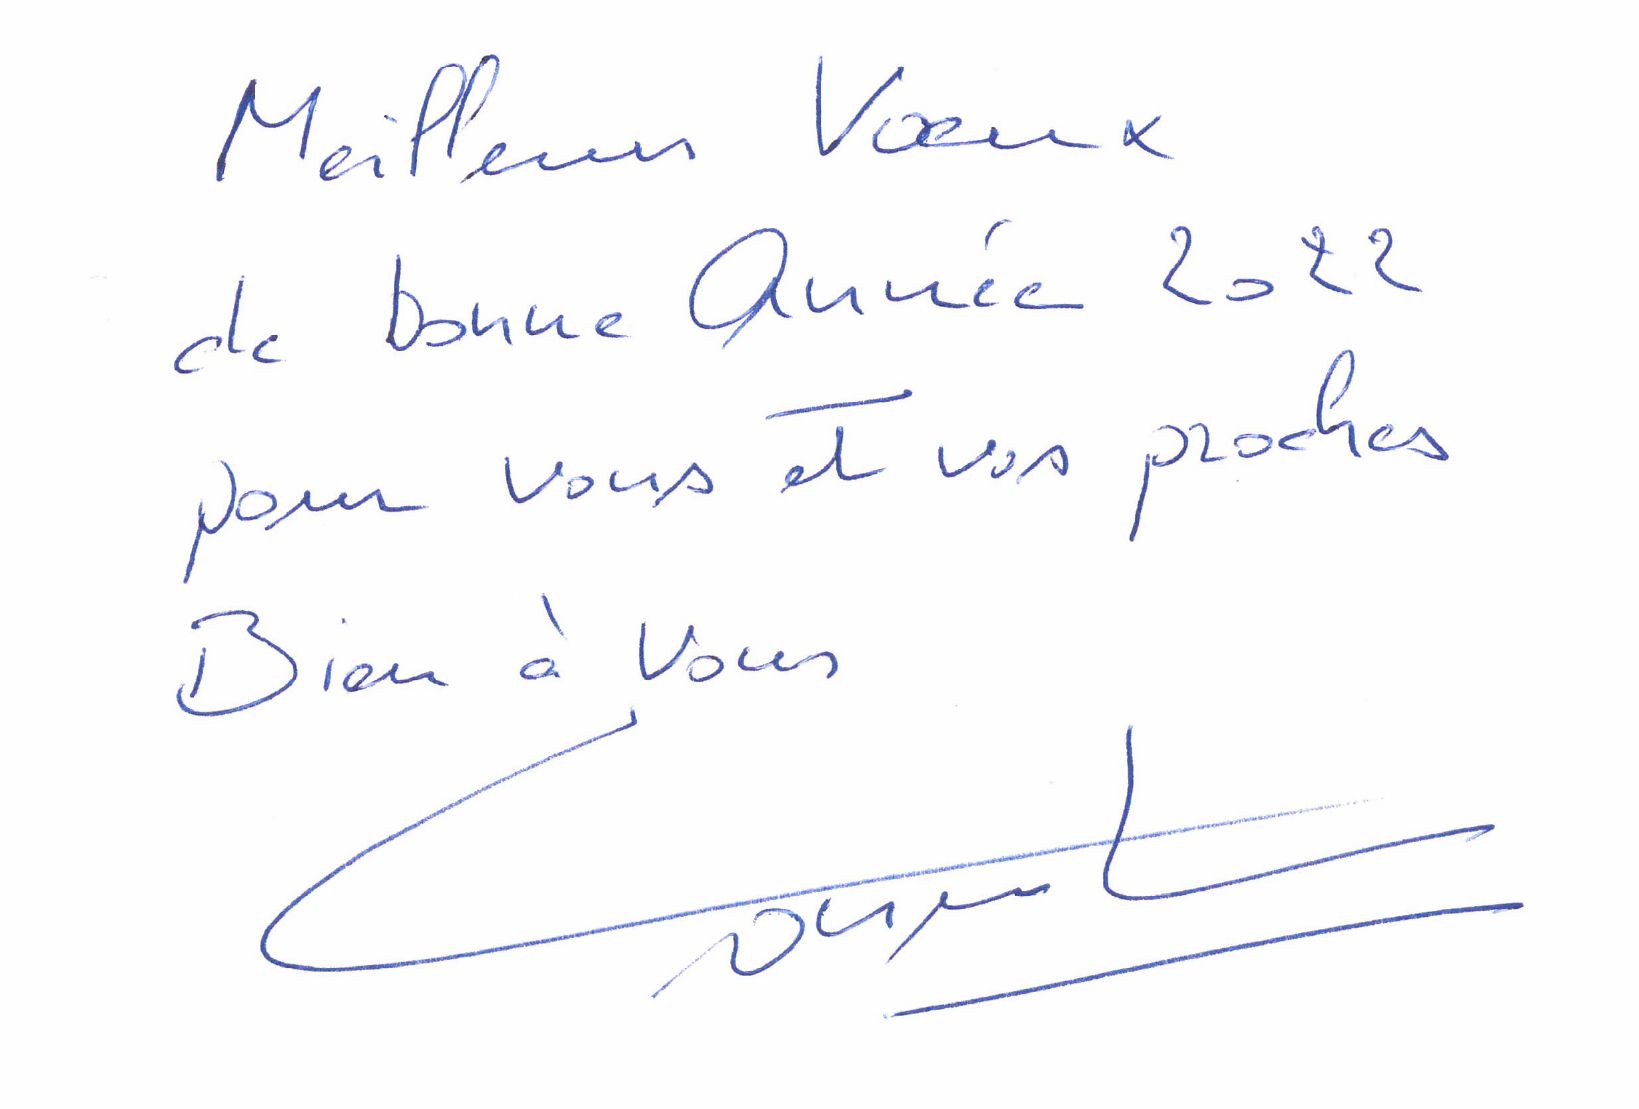 Meilleurs Vœux
de bonne Année 2022
pour vous et vos proches
Bien à Vous